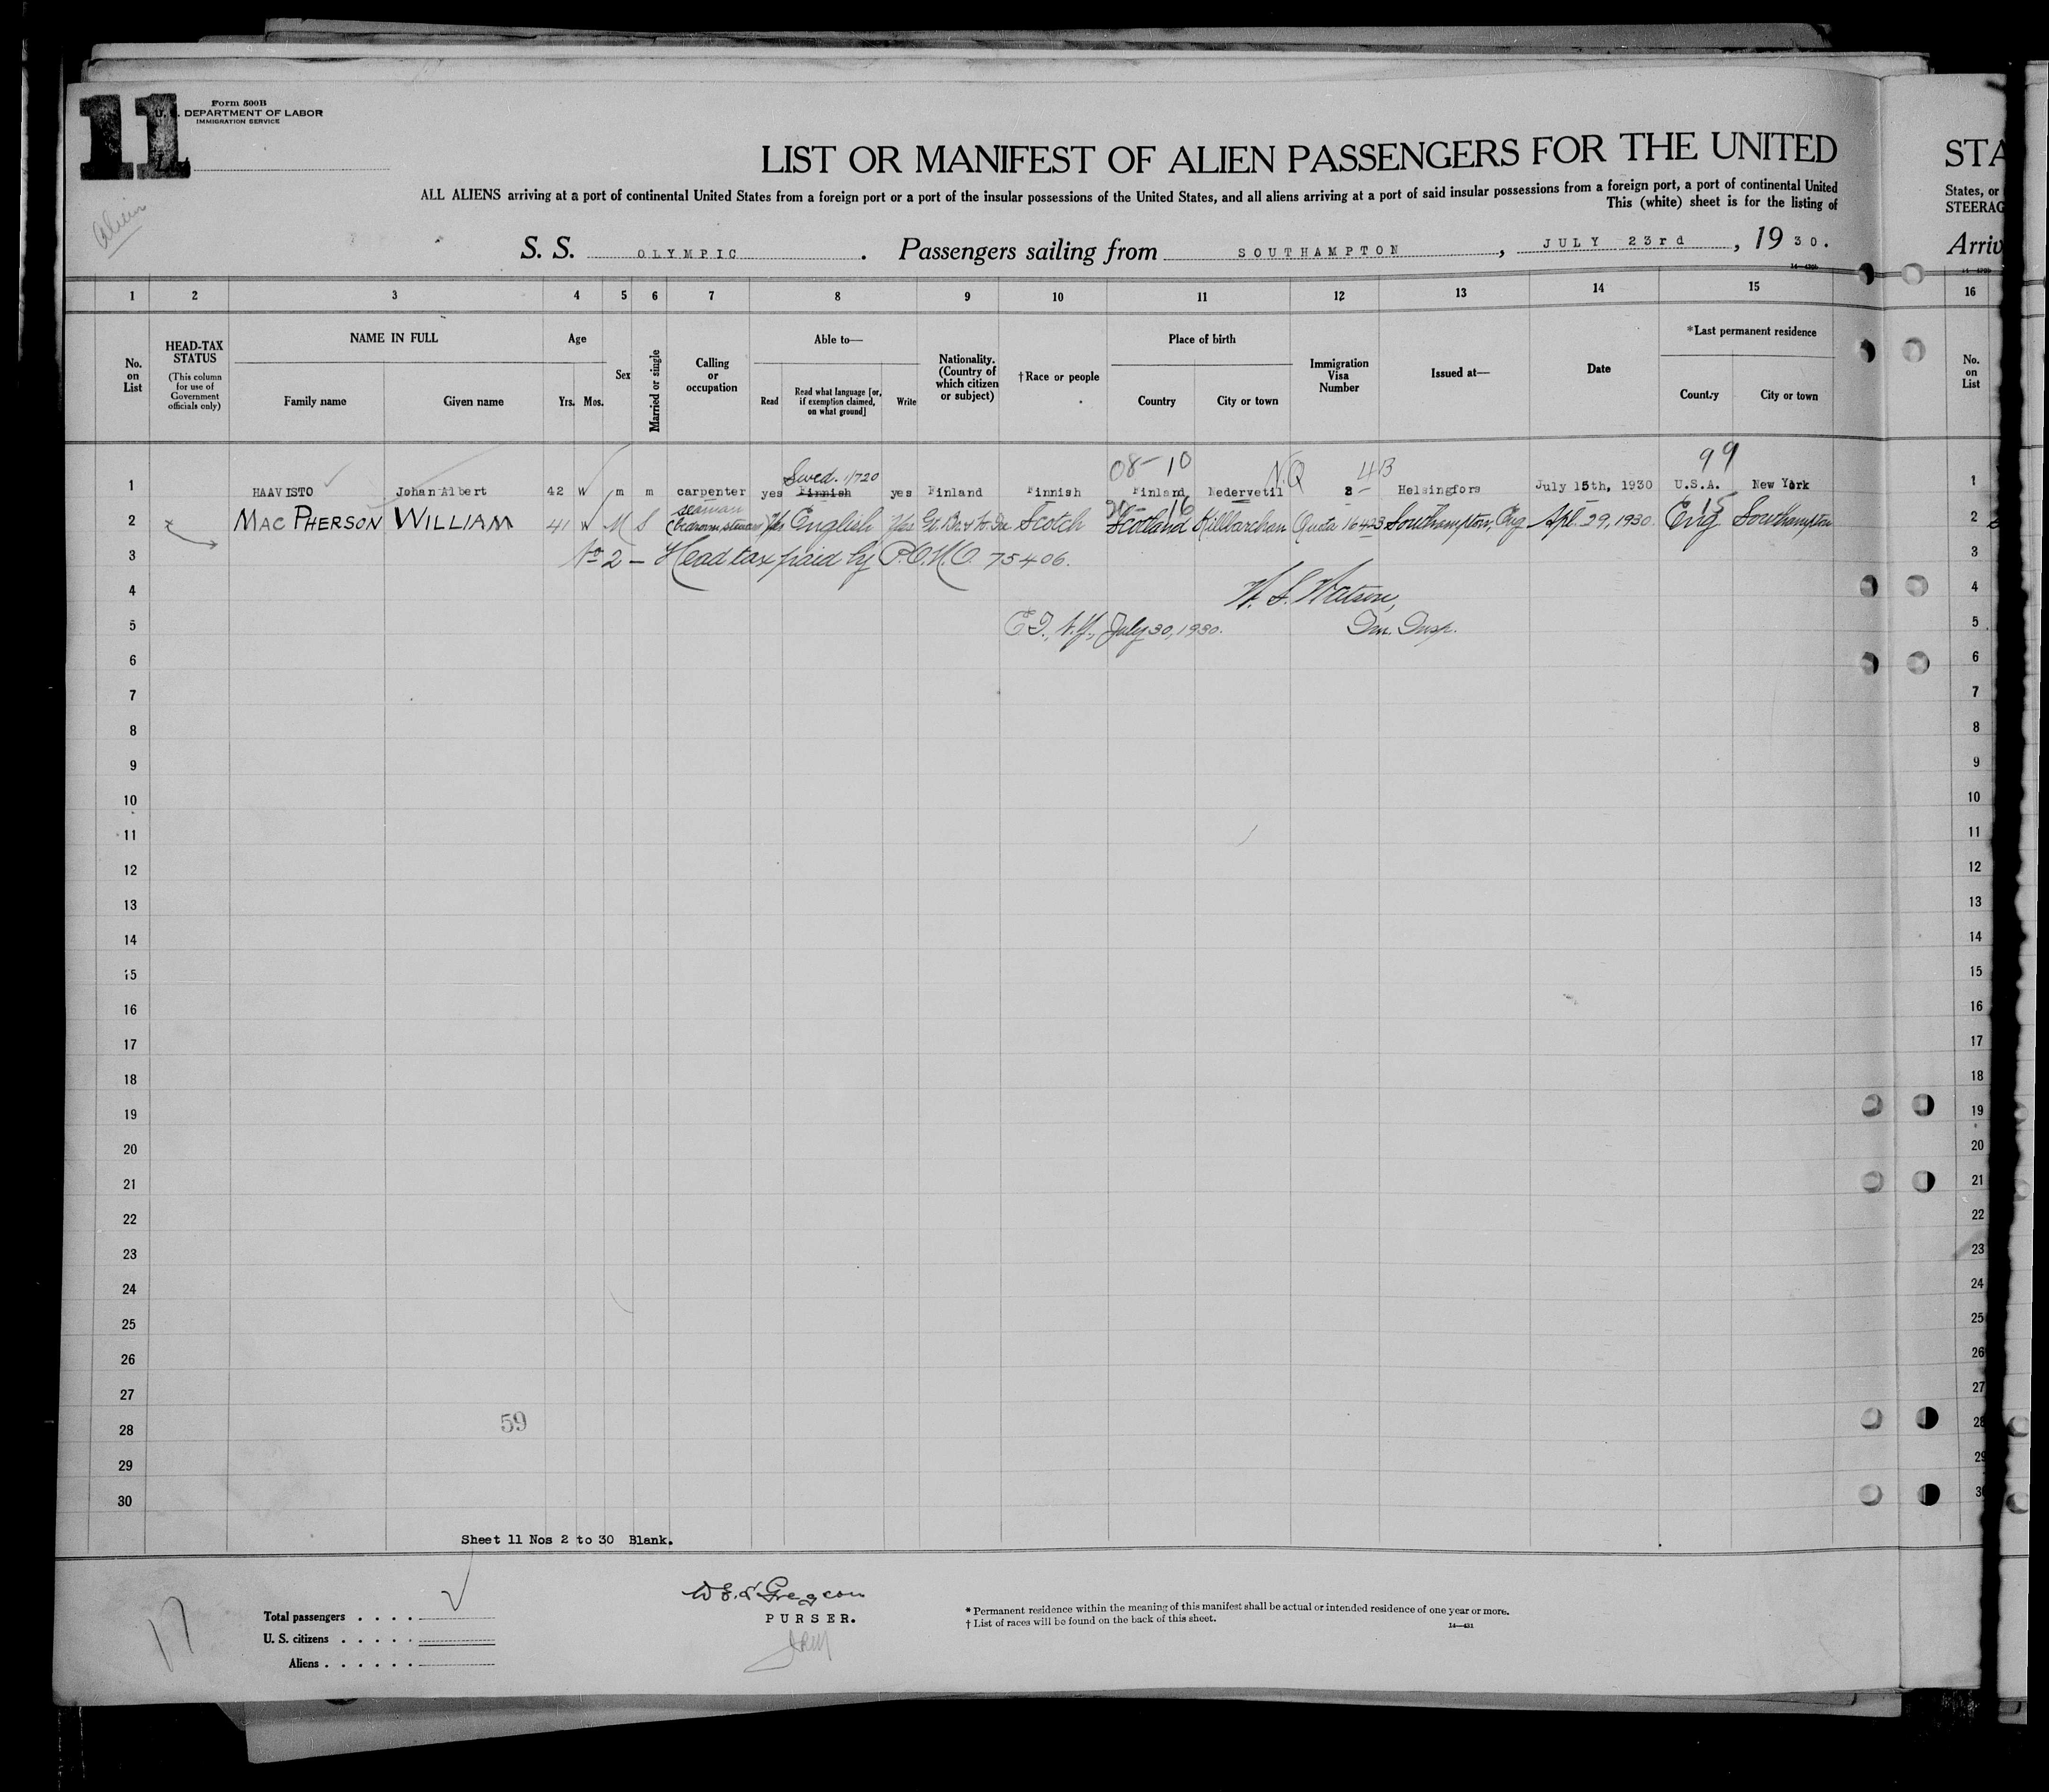 11
Form 500B
U. S. DEPARTMENT OF LABOR
IMMIGRATION SERVICE
Alien
LIST OR MANIFEST OF ALIEN PASSENGERS FOR THE UNITED
STA
ALL ALIENS arriving at a port of continental United States from a foreign port or a port of the insular possessions of the United States, and all aliens arriving at a port of said insular possessions from a foreign port, a port of continental United
States, or
This (white) sheet is for the listing of
STEERAG
S. S. OLYMPIC. Passengers sailing from SOUTHAMPTON, JULY 23rd, 1930.
Arriv
1 2 3 4 5 6 7 8 9 10 11 12 13 14 15 16
No. on List
HEAD-TAX STATUS
(This column for use of Government officials only)
NAME IN FULL
Family name Given name
Age
Yrs. Mos.
Sex
Married or single
Calling or occupation
Able to—
Read
Read what language [or, if exemption claimed, on what ground]
Write
Nationality. (Country of which citizen or subject)
†Race or people
Place of birth
Country City or town
Immigration Visa Number
Issued at—
Date
*Last permanent residence
Country City or town
No. on List
08-10 NQ 4B 99
Swed. 1/720
1 HAAVISTO Johan Albert 42 W m m carpenter yes Finnish yes Finland Finnish Finland Nedervetil 2 Helsingfors July 15th, 1930 U.S.A. New York 1
seaman 16 15
2 x MAC PHERSON WILLIAM 41 W M S (bedroom steward) Yes English Yes Scotch Scotland Kilbarchan Quota 16423 Southampton, Eng Apl. 29, 1930. Eng Southampton 2
3 No 2 — Head tax paid by P.O.M.O. 75406. 3
4 W. S. Watson, 4
5 E I., N.Y., July 30, 1930. Im. Insp. 5
6 6
7 7
8 8
9 9
10 10
11 11
12 12
13 13
14 14
15 15
16 16
17 17
18 18
19 19
20 20
21 21
22 22
23 23
24 24
25 25
26 26
27 27
59
28 28
29 29
30 30
Sheet 11 Nos 2 to 30 Blank.
17
Total passengers . . . .
U. S. citizens . . . . .
Aliens . . . . . .
PURSER.
* Permanent residence within the meaning of this manifest shall be actual or intended residence of one year or more.
† List of races will be found on the back of this sheet.
14—431